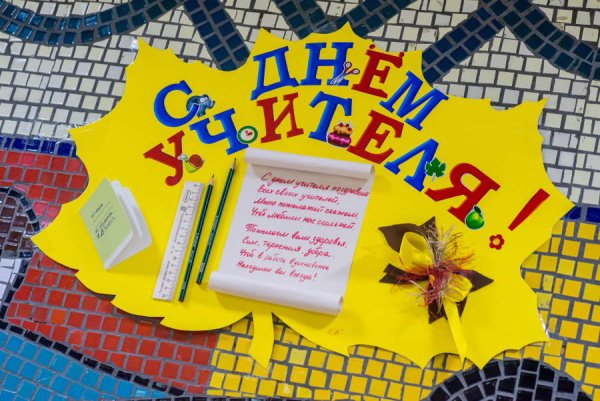 С ДНЁМ
УЧИТЕЛЯ!
С днём учителя поздравим
Всех своих учителей,
Много пожеланий скажем,
Чтоб любили нас сильней.
Пожелаем вам здоровья,
Сил, терпения, добра.
Чтоб в работе
Находили вы всегда!